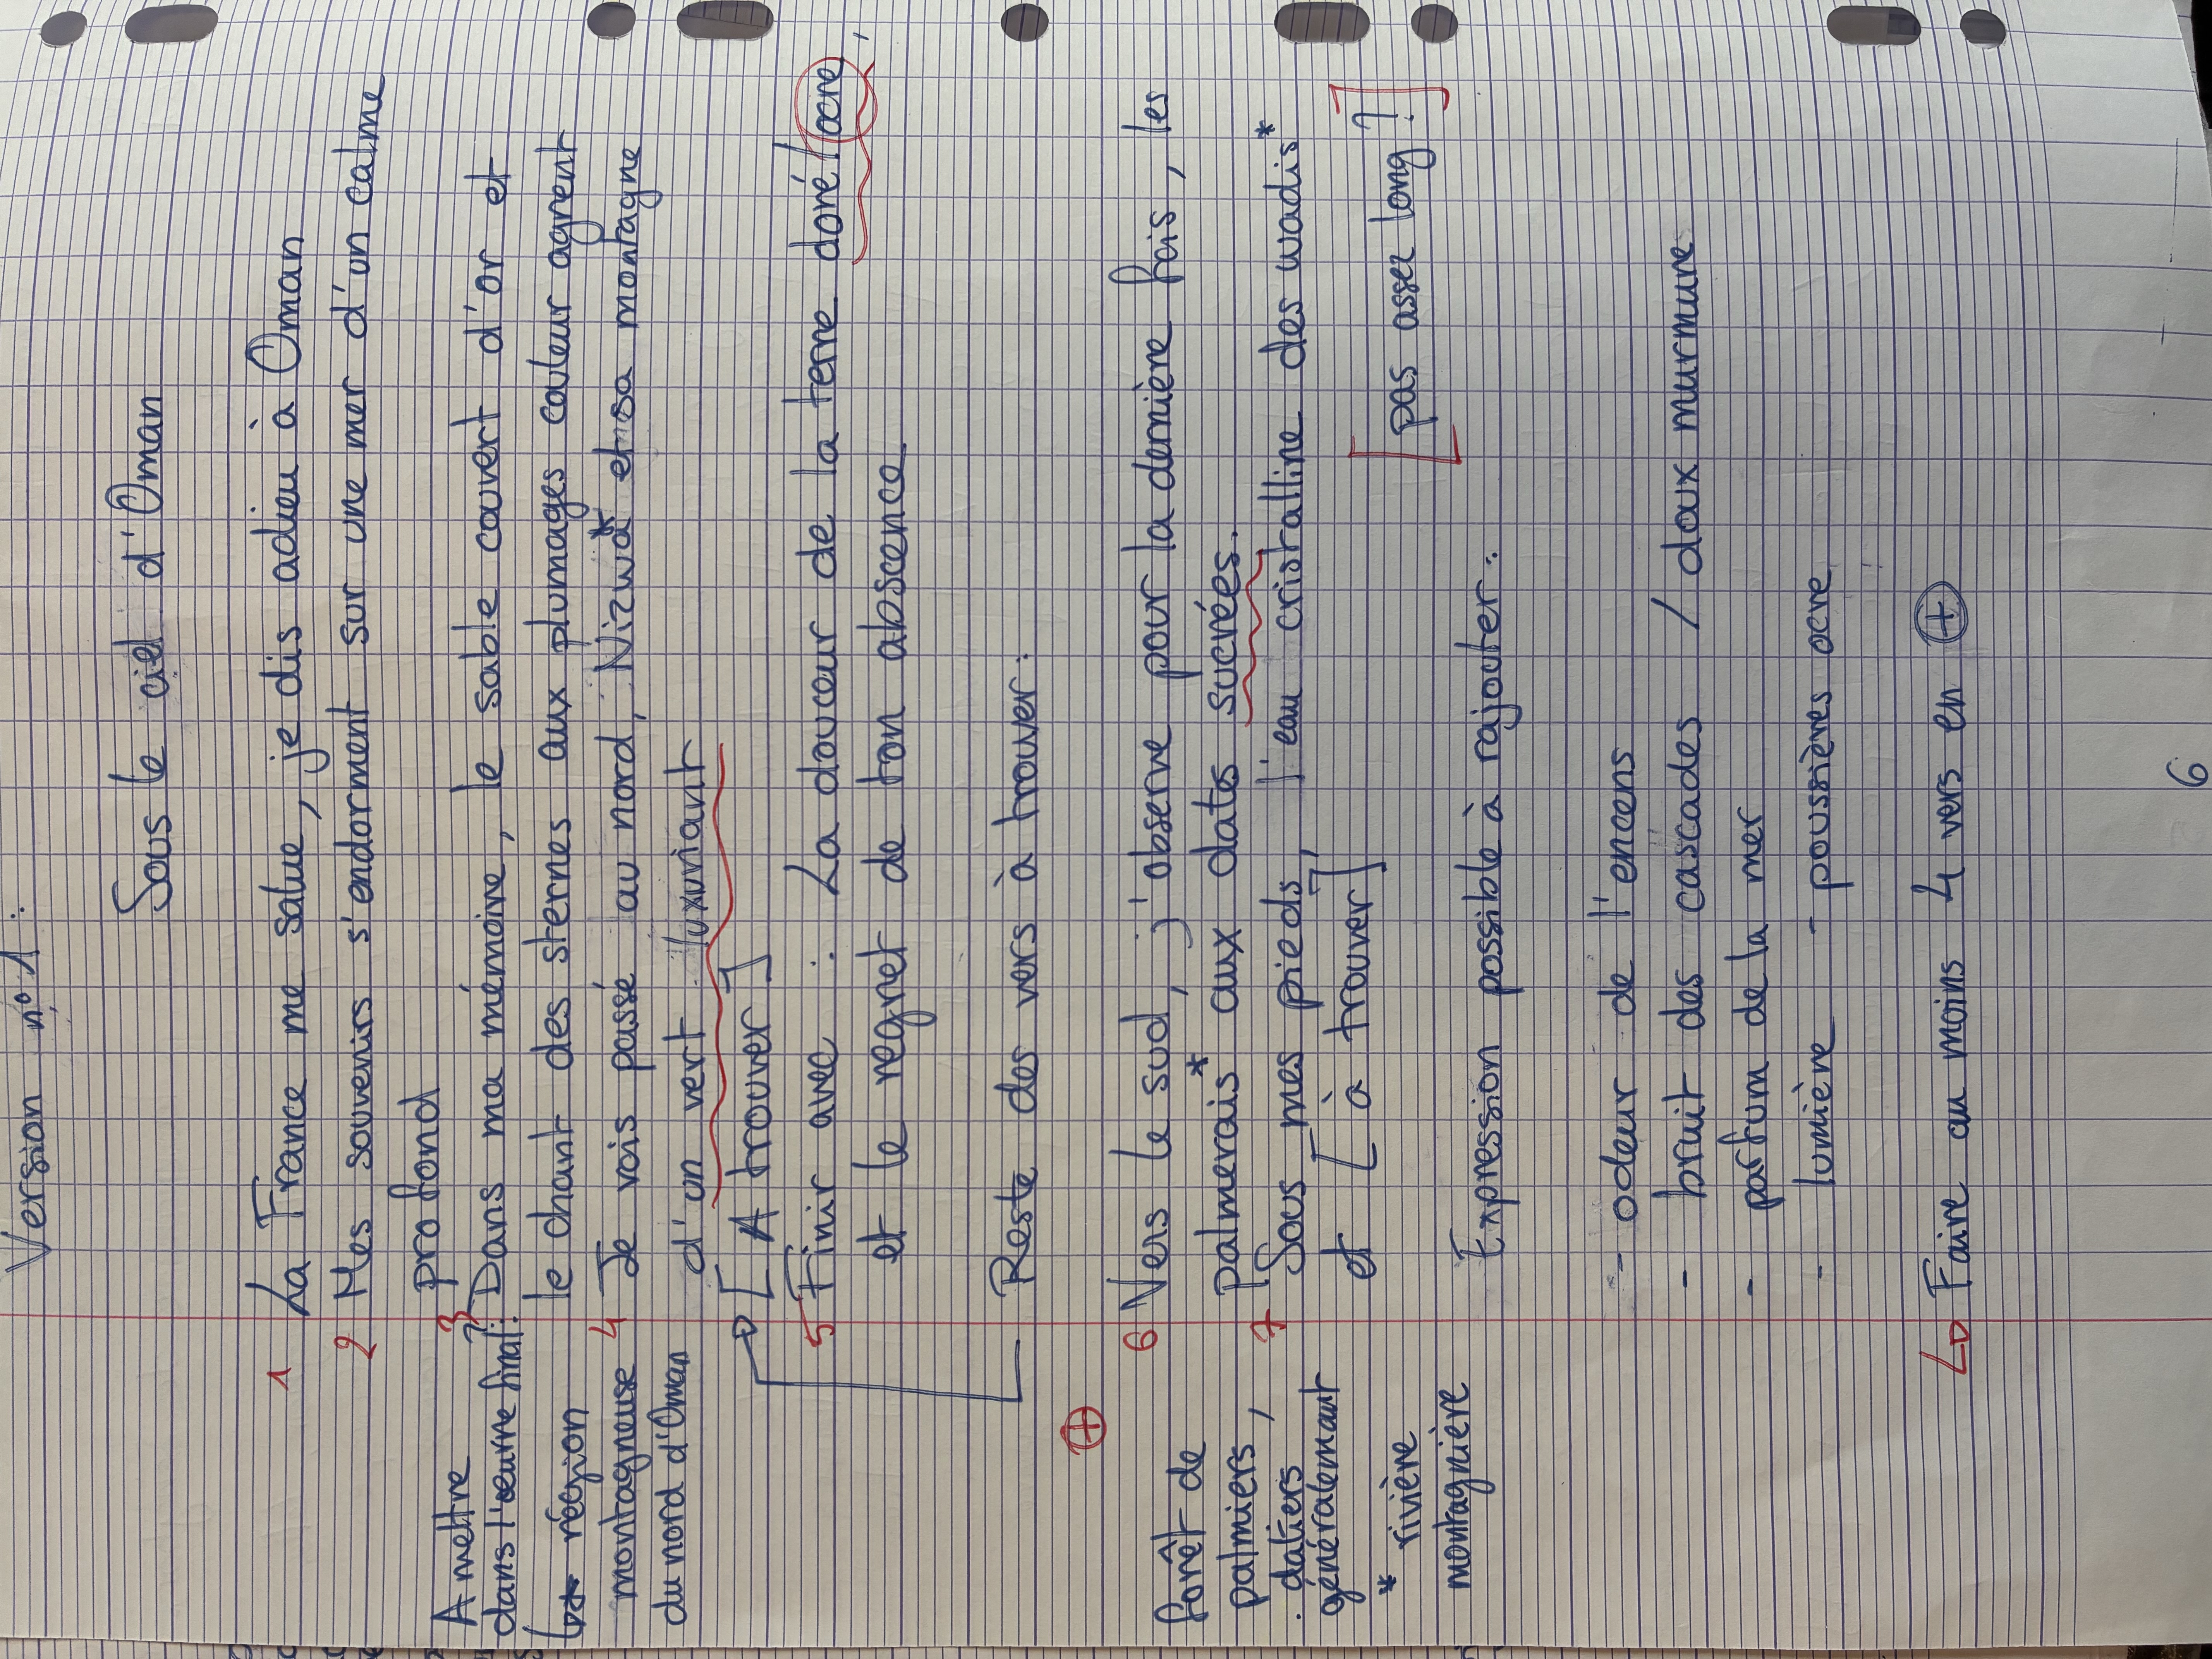 Version n°1 :
Sous le ciel d'Oman
1 La France me salue, je dis adieu à Oman
2 Mes souvenirs s'endorment sur une mer d'un calme
profond
3 Dans ma mémoire, le sable couvert d'or et
le chant des sternes aux plumages couleur agrent
4 Je vois passé au nord, Nizwa* et sa montagne
d'un vert luxuriant
[A trouver]
5 Finir avec : La douceur de la terre doré/ocre,
et le regret de ton abscence
Reste des vers à trouver :
6 Vers le sud, j'observe pour la dernière fois, les
palmerais* aux dates sucrées.
7 Sous mes pieds, l'eau cristalline des wadis*
et [à trouver]
[pas assez long ?]
Expression possible à rajouter :
- odeur de l'encens
- bruit des cascades / doux murmure
- parfum de la mer
- lumière - poussières ocre
Faire au moins 4 vers en +
A mettre
dans l'œuvre final :
région
montagneuse
du nord d'Oman
+
forêt de
palmiers,
datiers
généralemaut
* rivière
montagnière
6